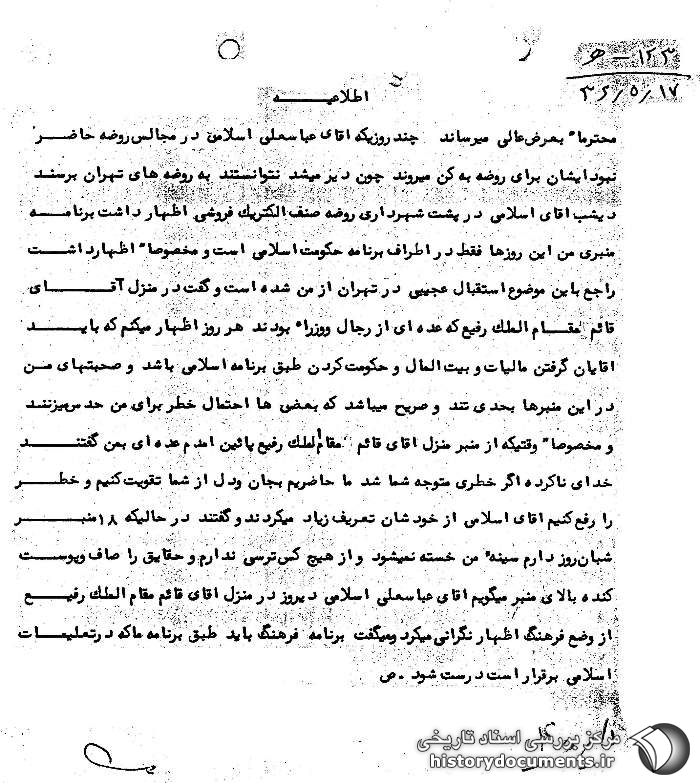 ۱۲۳ - هـ
۳۶/۵/۱۷
اطلاعیــــه
محترما" بعرض عالی میرساند چند روزیکه اقای عباسعلی اسلامی در مجالس روضه حاضـــر
نبود ایشان برای روضه به کن میروند چون دیر میشد نتوانستند به روضه های تهران برسند
دیشب اقای اسلامی در پشت شهرداری روضه صنف الکتریک فروشی اظهار داشت برنامـــه
منبری من این روزها فقط در اطراف برنامه حکومت اسلامی است و مخصوصا" اظهارداشـــت
راجع باین موضوع استقبال عجیبی در تهران از من شده است و گفت در منزل آقــــای
قائم مقـــام الملک رفیع که عده ای از رجال و وزراء بودند هر روز اظهار میکنم که بایـــد
اقایان گرفتن مالیات و بیت المال و حکومت کردن طبق برنامه اسلامی باشد و صحبتهای مـــن
در این منبرها بحدی تند و صریح میباشد که بعضی ها احتمال خطر برای من حدس میزننـد
و مخصوصا" وقتیکه از منبر منزل اقای قائم مقام الملک رفیع پائین امدم عده ای بمن گفتنــــد
خدای ناکرده اگر خطری متوجه شما شد ما حاضریم بجان ودل از شما تقویت کنیم و خطـــر
را رفع کنیم اقای اسلامی از خودشان تعریف زیاد میکردند و گفتند در حالیکه ۱۸ منبـــر
شبان روز دارم سینه من خسته نمیشود و از هیچ کس ترسی ندارم و حقایق را صاف و پوست
کنده بالای منبر میگویم اقای عباسعلی اسلامی دیروز در منزل اقای قائم مقام الملک رفیـــع
از وضع فرهنگ اظهار نگرانی میکرد و میگفت برنامه فرهنگ باید طبق برنامه ما که در تعلیمـــات
اسلامی برقرار است درست شود . ص
مرکز بررسی اسناد تاریخی
historydocuments.ir